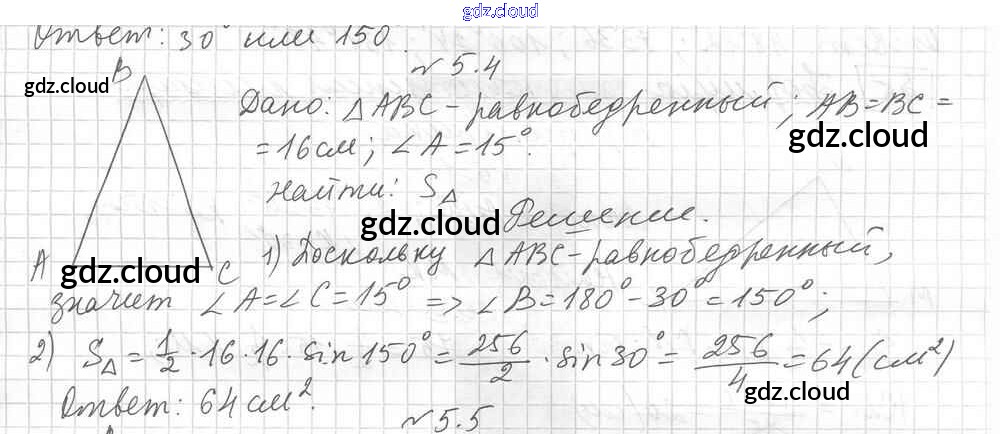 gdz.cloud
Ответ: 30° или 150
№ 5.4
gdz.cloud
B
Дано: △ ABC - равнобедренный; AB = BC =
gdz.cloud
= 16 см; ∠A = 15°.
Найти: S△
gdz.cloud
Решение.
A
gdz.cloud
C
1) Поскольку △ ABC - равнобедренный,
значит ∠A = ∠C = 15° => ∠B = 180° - 30° = 150°;
2) S△ = 1/2 · 16 · 16 · sin 150° = 256/2 · sin 30° = 256/4 = 64 (см²)
gdz.cloud
Ответ: 64 см².
gdz.cloud
№ 5.5